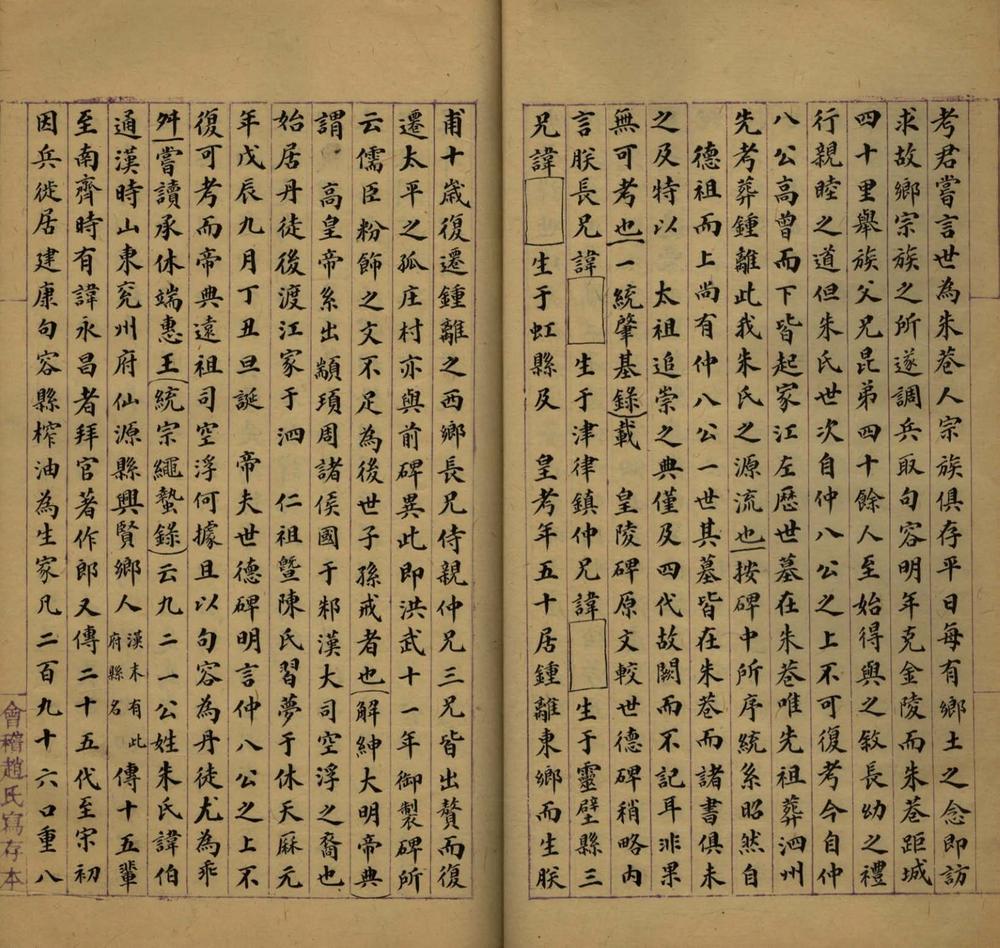 考君嘗言世為朱巷人宗族俱存平日每有鄉土之念即訪
求故鄉宗族之所遂調兵取句容明年克金陵而朱巷距城
四十里舉族父兄昆弟四十餘人至始得與之敘長幼之禮
行親睦之道但朱氏世次自仲八公之上不可復考今自仲
八公高曾而下皆起家江左歷世墓在朱巷唯先祖葬泗州
先考葬鍾離此我朱氏之源流也按碑中所序統系昭然自
德祖而上尚有仲八公一世其墓皆在朱巷而諸書俱未
之及特以 太祖追崇之典僅及四代故闕而不記耳非果
無可考也一統肇基錄載 皇陵碑原文較世德碑稍略內
言朕長兄諱 生于津律鎮仲兄諱 生于靈壁縣三
兄諱 生于虹縣及 皇考年五十居鍾離東鄉而生朕
甫十歲復遷鍾離之西鄉長兄侍親仲兄三兄皆出贅而復
遷太平之孤庄村亦與前碑異此即洪武十一年御製碑所
云儒臣粉飾之文不足為後世子孫戒者也解紳大明帝典
謂 高皇帝系出顓頊周諸侯國于邾漢大司空浮之裔也
始居丹徒後渡江家于泗 仁祖暨陳氏習夢于休天厤元
年戊辰九月丁丑旦誕 帝夫世德碑明言仲八公之上不
復可考而帝典遠祖司空浮何據且以句容為丹徒尤為乖
舛嘗讀承休端惠王統宗繩蟄錄云九二一公姓朱氏諱伯
通漢時山東兗州府仙源縣興賢鄉人漢末有此府縣名傳十五輩
至南齊時有諱永昌者拜官著作郎又傳二十五代至宋初
因兵徙居建康句容縣榨油為生家凡二百九十六口重八
會稽趙氏寫存本